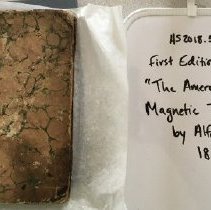 HS2018.5
First Editio
"The Amer
Magnetic T
by Alf
18